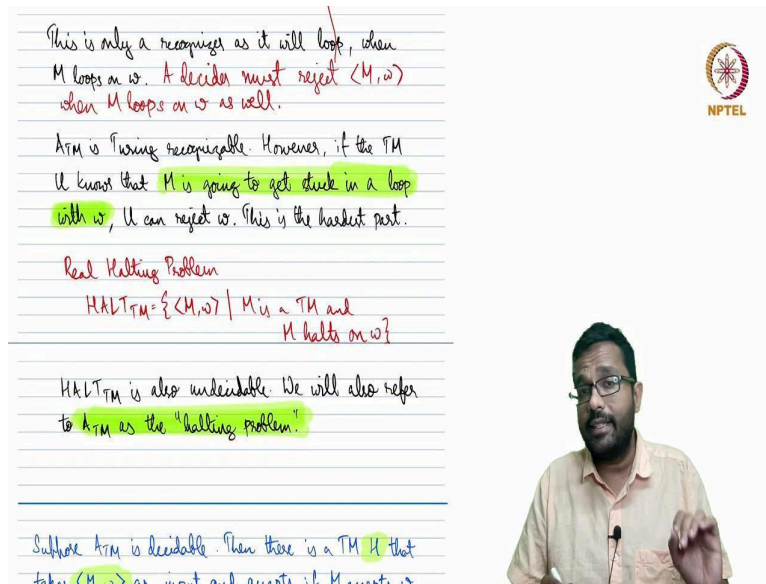 This is only a recognizer as it will loop, when
M loops on w. A decider must reject ⟨M,w⟩
when M loops on w as well.
NPTEL
A_TM is Turing recognizable. However, if the TM
U knows that M is going to get stuck in a loop
with w, U can reject w. This is the hardest part.
Real Halting Problem
HALT_TM = {⟨M,w⟩ | M is a TM and
M halts on w}
HALT_TM is also undecidable. We will also refer
to A_TM as the "halting problem."
Suppose A_TM is decidable. Then there is a TM H that
takes ⟨M,w⟩ as input and accepts if M accepts w